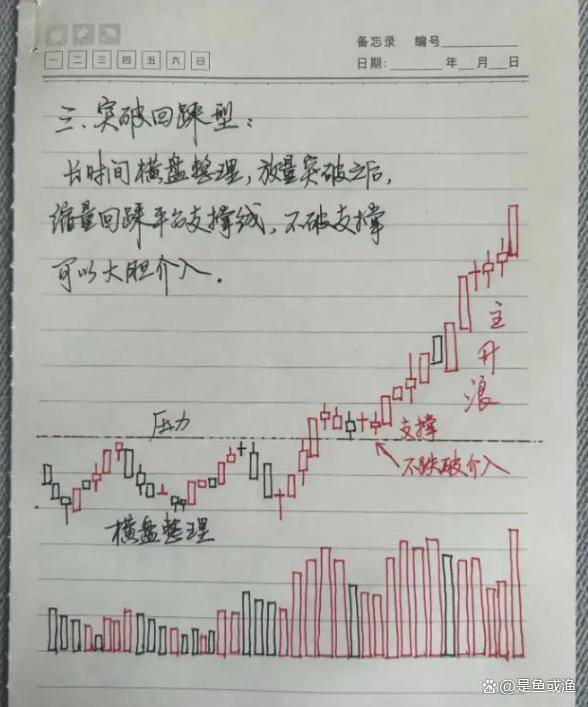 备忘录 编号
一 二 三 四 五 六 日
日期: 年 月 日
三、突破回踩型:
长时间横盘整理,放量突破之后,
缩量回踩平台支撑线,不破支撑
可以大胆介入.
主升浪
压力
支撑
不跌破介入
横盘整理
是鱼或渔